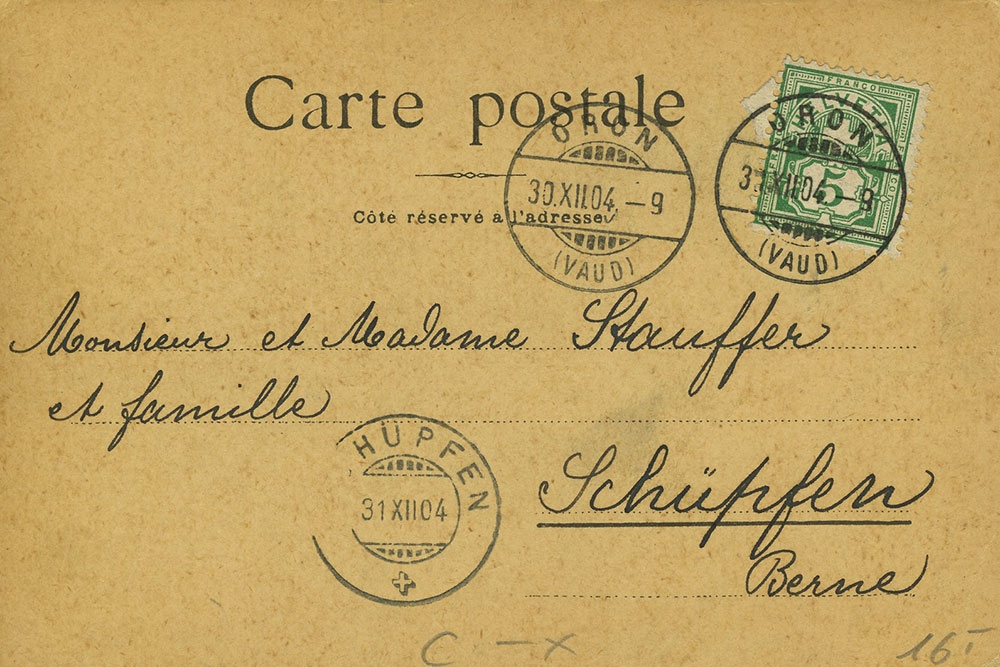 Carte postale
Côté réservé à l'adresse
FRANCO
HELVETIA
5
ORON
30.XII.04.–9
(VAUD)
ORON
.XII.04.–9
(VAUD)
Monsieur et Madame Stauffer
et famille
HÜPFEN
31 XII 04
Schüpfen
Berne
C – X